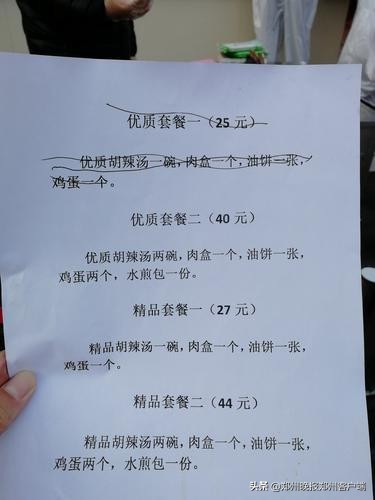 优质套餐一（25 元）
优质胡辣汤一碗，肉盒一个，油饼一张，
鸡蛋一个。
优质套餐二（40 元）
优质胡辣汤两碗，肉盒一个，油饼一张，
鸡蛋两个，水煎包一份。
精品套餐一（27 元）
精品胡辣汤一碗，肉盒一个，油饼一张，
鸡蛋一个。
精品套餐二（44 元）
精品胡辣汤两碗，肉盒一个，油饼一张，
鸡蛋两个，水煎包一份。
头条 @郑州晚报郑州客户端